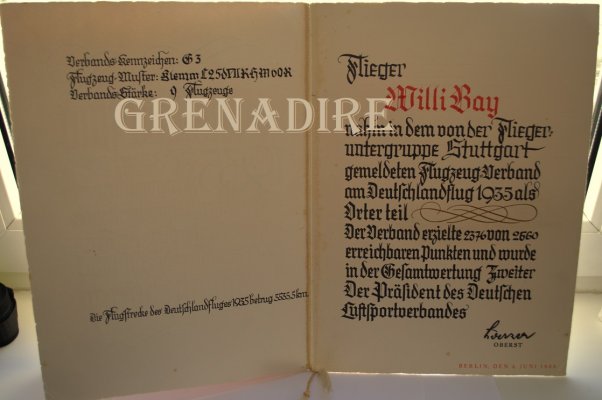 Verbands-Kennzeichen: G 3
Flugzeug-Muster: Klemm L25d VII R HM 60 R
Verbands-Stärke: 9 Flugzeuge
GRENADIRE
Die Flugstrecke des Deutschlandfluges 1935 betrug 5535,5 km.
Flieger
Willi Bay
nahm in dem von der Flieger-
untergruppe Stuttgart
gemeldeten Flugzeug-Verband
am Deutschlandflug 1935 als
Orter teil
Der Verband erzielte 2376 von 2660
erreichbaren Punkten und wurde
in der Gesamtwertung Zweiter
Der Präsident des Deutschen
Luftsportverbandes
OBERST
BERLIN, DEN JUNI